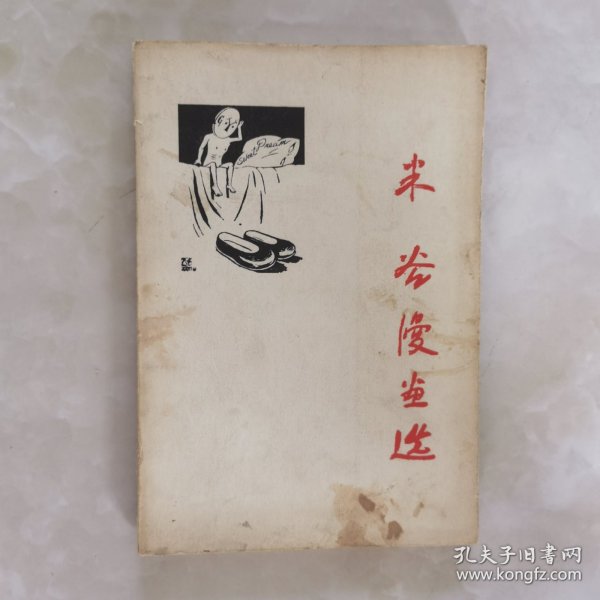 米谷漫画选
Sweet Dream
孔夫子旧書网
www.kongfz.com